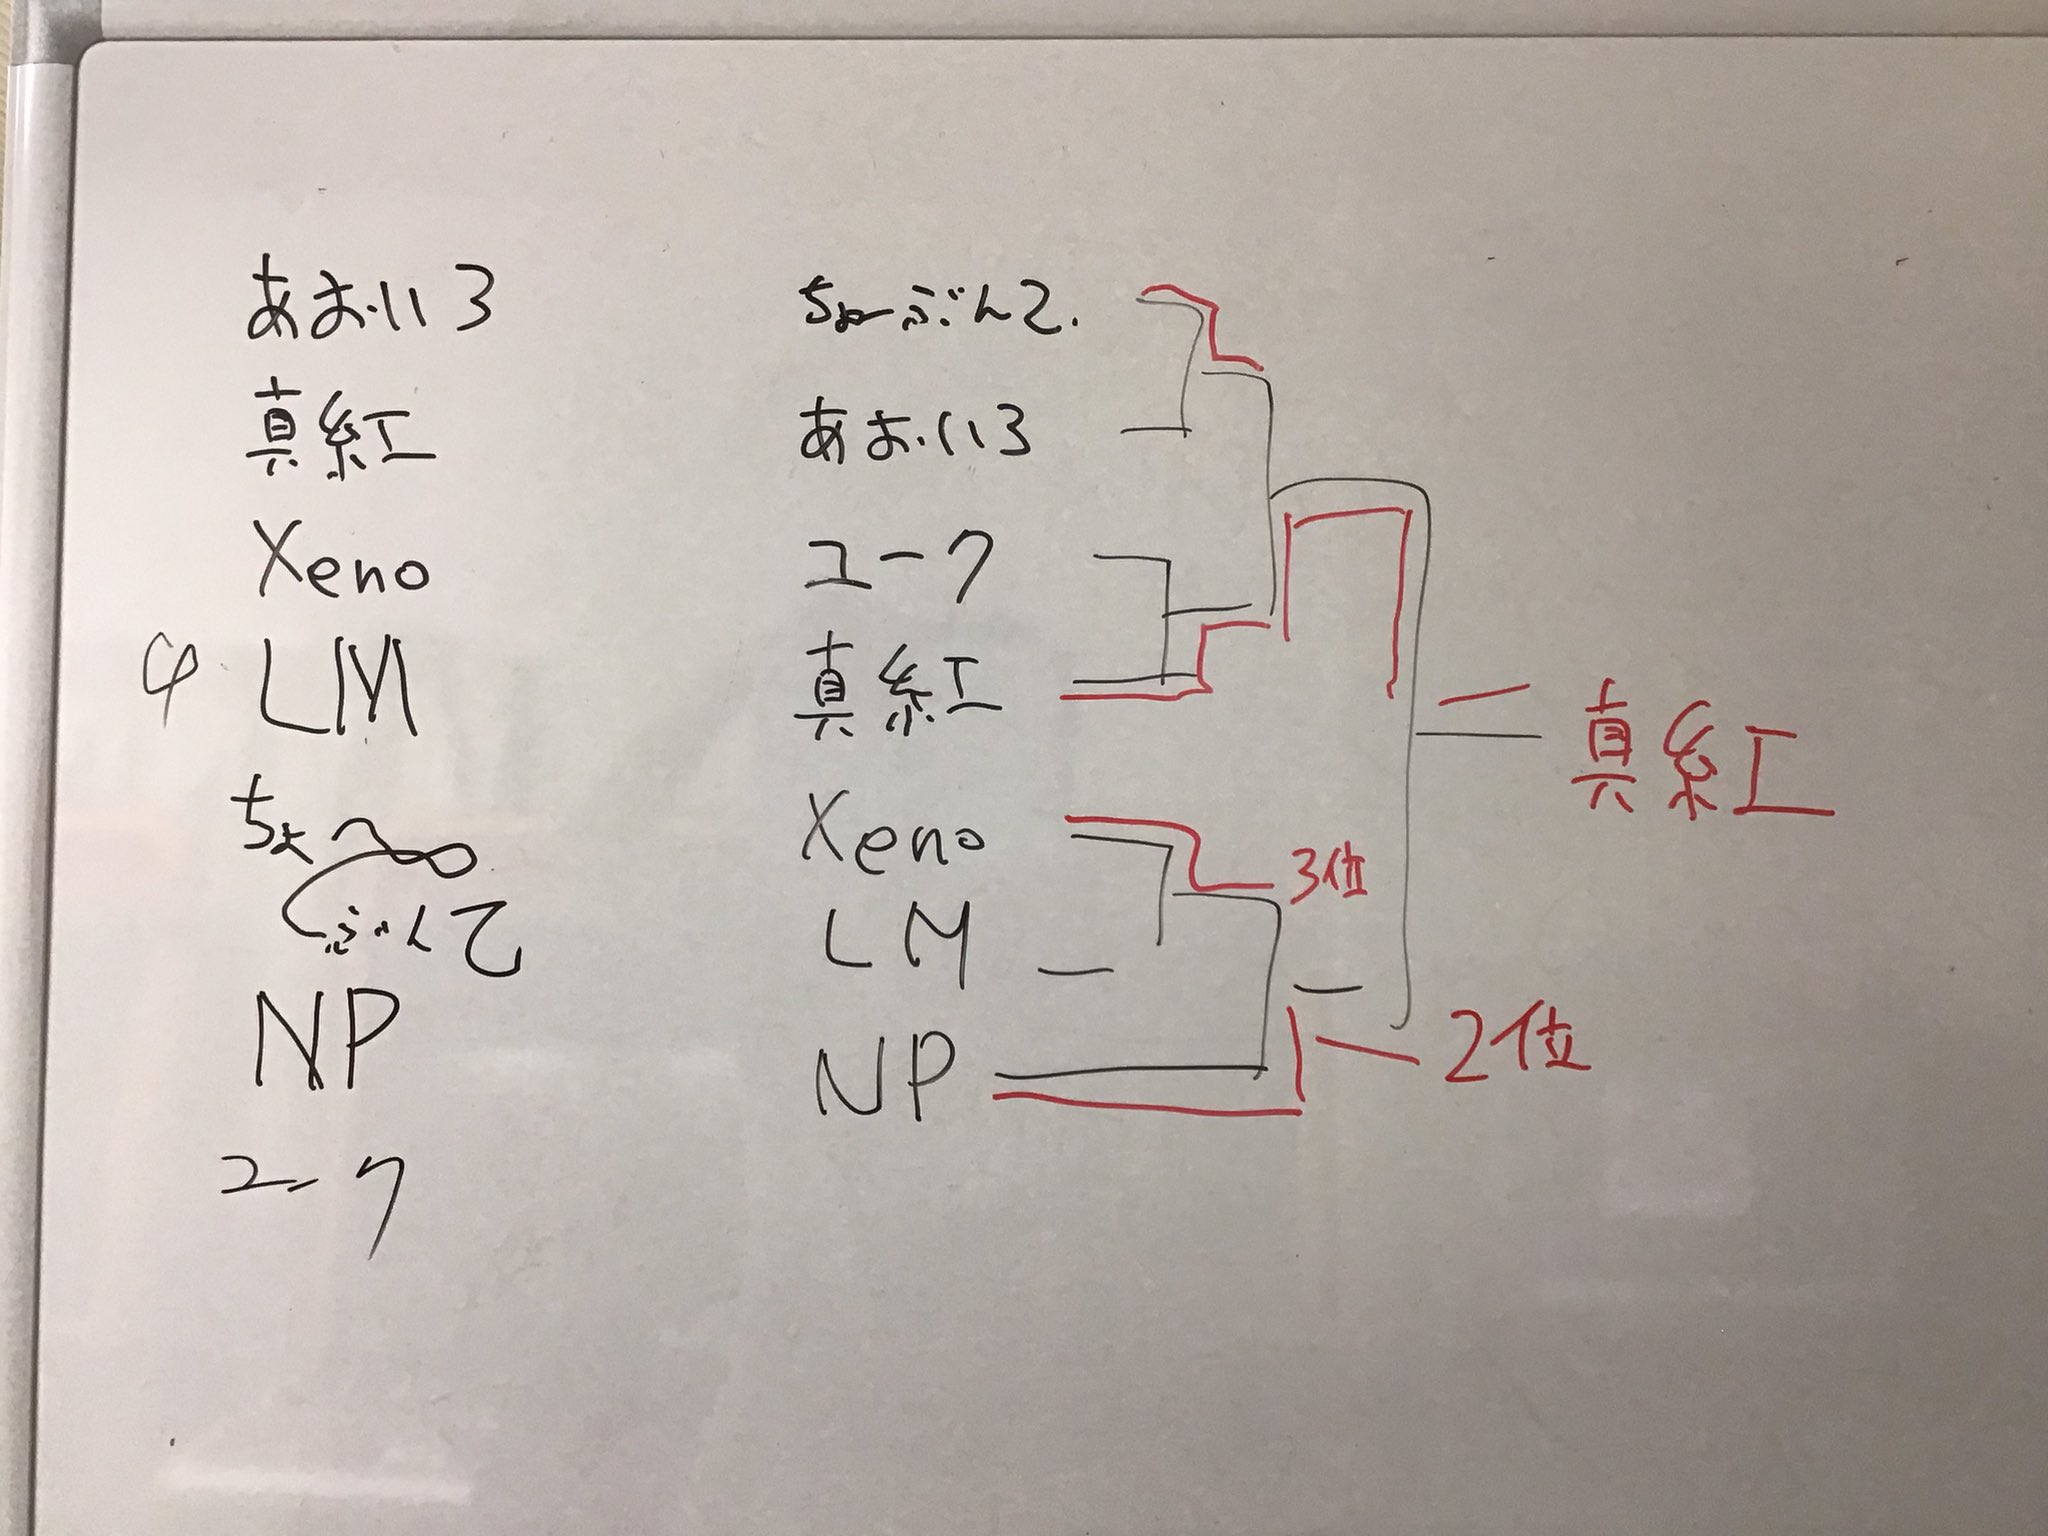 あおいろ
真紅
Xeno
LM
ちょ〜
ぶんて
NP
ユーク
ちょーぶんて.
あおいろ
ユーク
真紅
Xeno
LM
NP
3位
真紅
2位